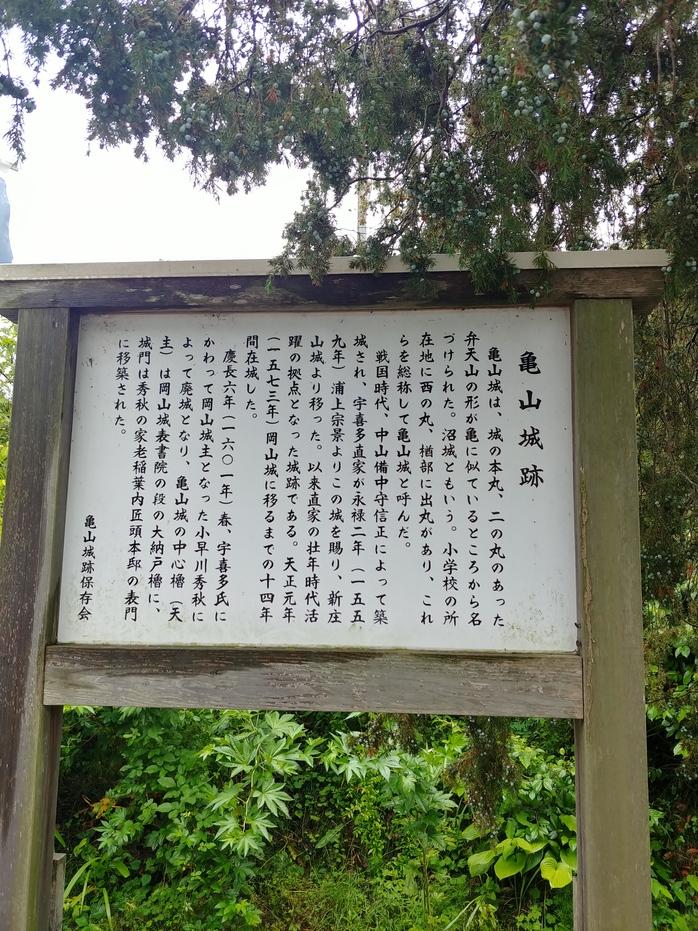 亀山城跡
亀山城は、城の本丸、二の丸のあった
弁天山の形が亀に似ているところから名
づけられた。沼城ともいう。小学校の所
在地に西の丸、楢部に出丸があり、これ
らを総称して亀山城と呼んだ。
戦国時代、中山備中守信正によって築
城され、宇喜多直家が永禄二年（一五五
九年）浦上宗景よりこの城を賜り、新庄
山城より移った。以来直家の壮年時代活
躍の拠点となった城跡である。天正元年
（一五七三年）岡山城に移るまでの十四年
間在城した。
慶長六年（一六〇一年）春、宇喜多氏に
かわって岡山城主となった小早川秀秋に
よって廃城となり、亀山城の中心櫓（天
主）は岡山城表書院の段の大納戸櫓に、
城門は秀秋の家老稲葉内匠頭本邸の表門
に移築された。
亀山城跡保存会